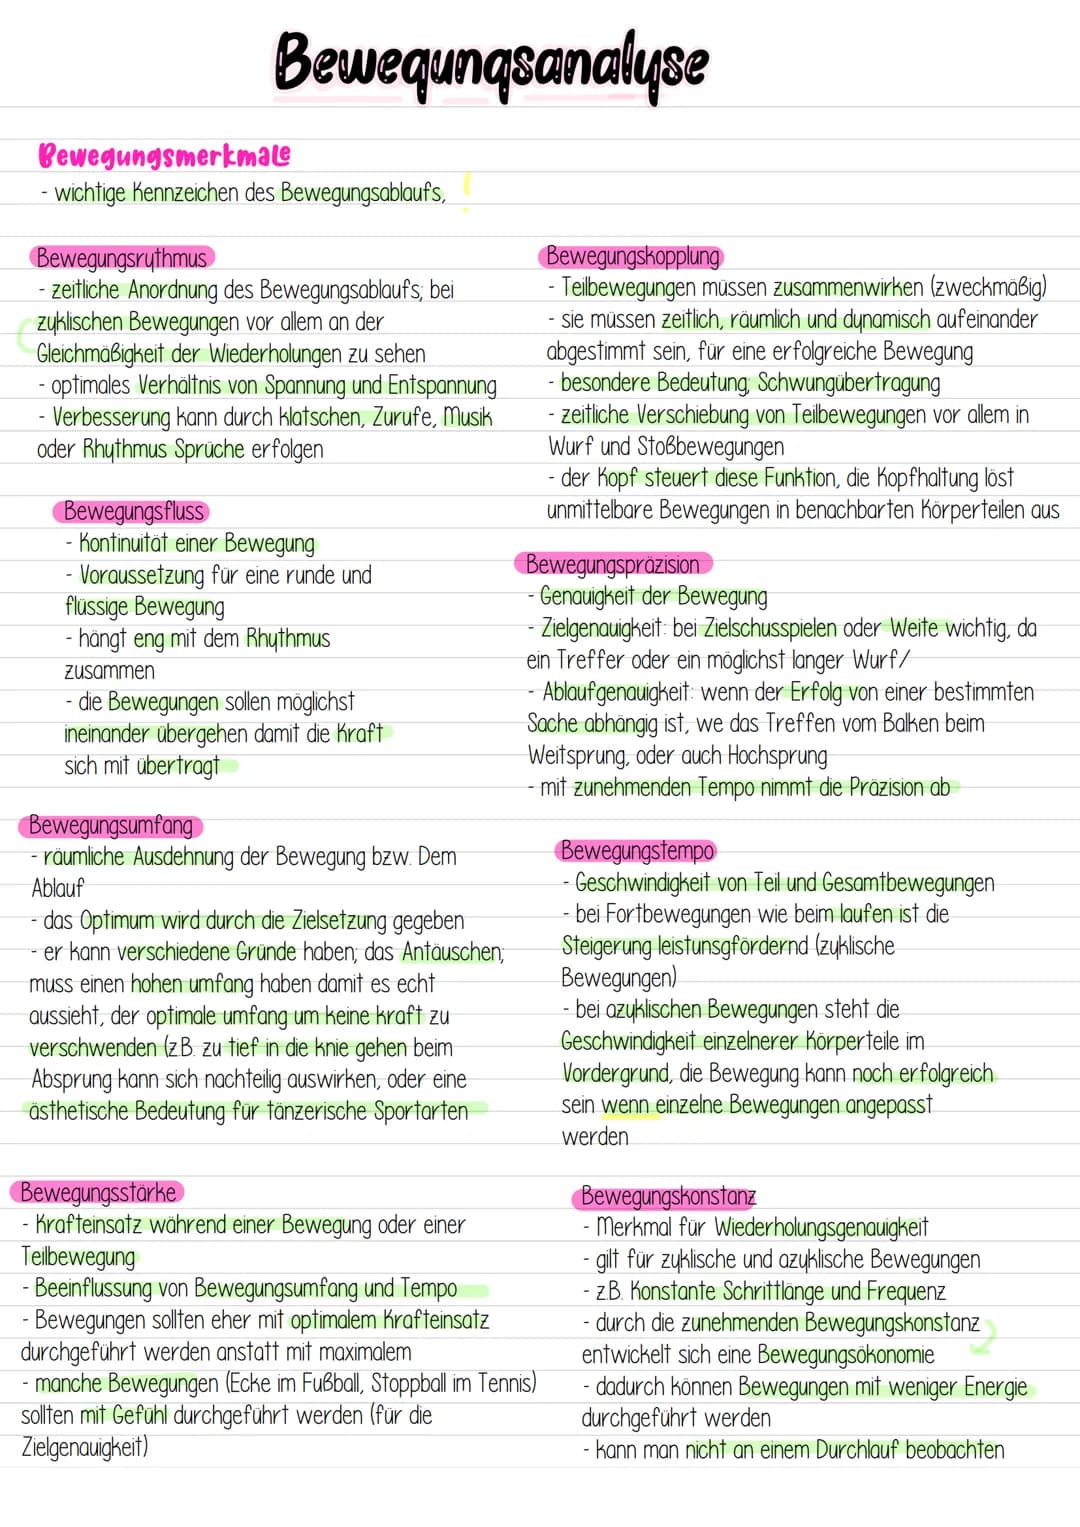 Bewegungsanalyse
Bewegungsmerkmale
- wichtige Kennzeichen des Bewegungsablaufs, !
Bewegungsrythmus
- zeitliche Anordnung des Bewegungsablaufs; bei
zyklischen Bewegungen vor allem an der
Gleichmäßigkeit der Wiederholungen zu sehen
- optimales Verhältnis von Spannung und Entspannung
- Verbesserung kann durch klatschen, Zurufe, Musik
oder Rhythmus Sprüche erfolgen
Bewegungsfluss
- Kontinuität einer Bewegung
- Voraussetzung für eine runde und
flüssige Bewegung
- hängt eng mit dem Rhythmus
zusammen
- die Bewegungen sollen möglichst
ineinander übergehen damit die Kraft
sich mit übertragt
Bewegungsumfang
- räumliche Ausdehnung der Bewegung bzw. Dem
Ablauf
- das Optimum wird durch die Zielsetzung gegeben
- er kann verschiedene Gründe haben; das Antäuschen;
muss einen hohen umfang haben damit es echt
aussieht, der optimale umfang um keine kraft zu
verschwenden (z.B. zu tief in die knie gehen beim
Absprung kann sich nachteilig auswirken, oder eine
ästhetische Bedeutung für tänzerische Sportarten
Bewegungsstärke
- Krafteinsatz während einer Bewegung oder einer
Teilbewegung
- Beeinflussung von Bewegungsumfang und Tempo
- Bewegungen sollten eher mit optimalem Krafteinsatz
durchgeführt werden anstatt mit maximalem
- manche Bewegungen (Ecke im Fußball, Stoppball im Tennis)
sollten mit Gefühl durchgeführt werden (für die
Zielgenauigkeit)
Bewegungskopplung
- Teilbewegungen müssen zusammenwirken (zweckmäßig)
- sie müssen zeitlich, räumlich und dynamisch aufeinander
abgestimmt sein, für eine erfolgreiche Bewegung
- besondere Bedeutung; Schwungübertragung
- zeitliche Verschiebung von Teilbewegungen vor allem in
Wurf und Stoßbewegungen
- der Kopf steuert diese Funktion, die Kopfhaltung löst
unmittelbare Bewegungen in benachbarten Körperteilen aus
Bewegungspräzision
- Genauigkeit der Bewegung
- Zielgenauigkeit: bei Zielschusspielen oder Weite wichtig, da
ein Treffer oder ein möglichst langer Wurf/
- Ablaufgenauigkeit: wenn der Erfolg von einer bestimmten
Sache abhängig ist, we das Treffen vom Balken beim
Weitsprung, oder auch Hochsprung
- mit zunehmenden Tempo nimmt die Präzision ab
Bewegungstempo
- Geschwindigkeit von Teil und Gesamtbewegungen
- bei Fortbewegungen wie beim laufen ist die
Steigerung leistunsgfördernd (zyklische
Bewegungen)
- bei azyklischen Bewegungen steht die
Geschwindigkeit einzelnerer Körperteile im
Vordergrund, die Bewegung kann noch erfolgreich
sein wenn einzelne Bewegungen angepasst
werden
Bewegungskonstanz
- Merkmal für Wiederholungsgenauigkeit
- gilt für zyklische und azyklische Bewegungen
- z.B. Konstante Schrittlänge und Frequenz
- durch die zunehmenden Bewegungskonstanz
entwickelt sich eine Bewegungsökonomie
- dadurch können Bewegungen mit weniger Energie
durchgeführt werden
- kann man nicht an einem Durchlauf beobachten